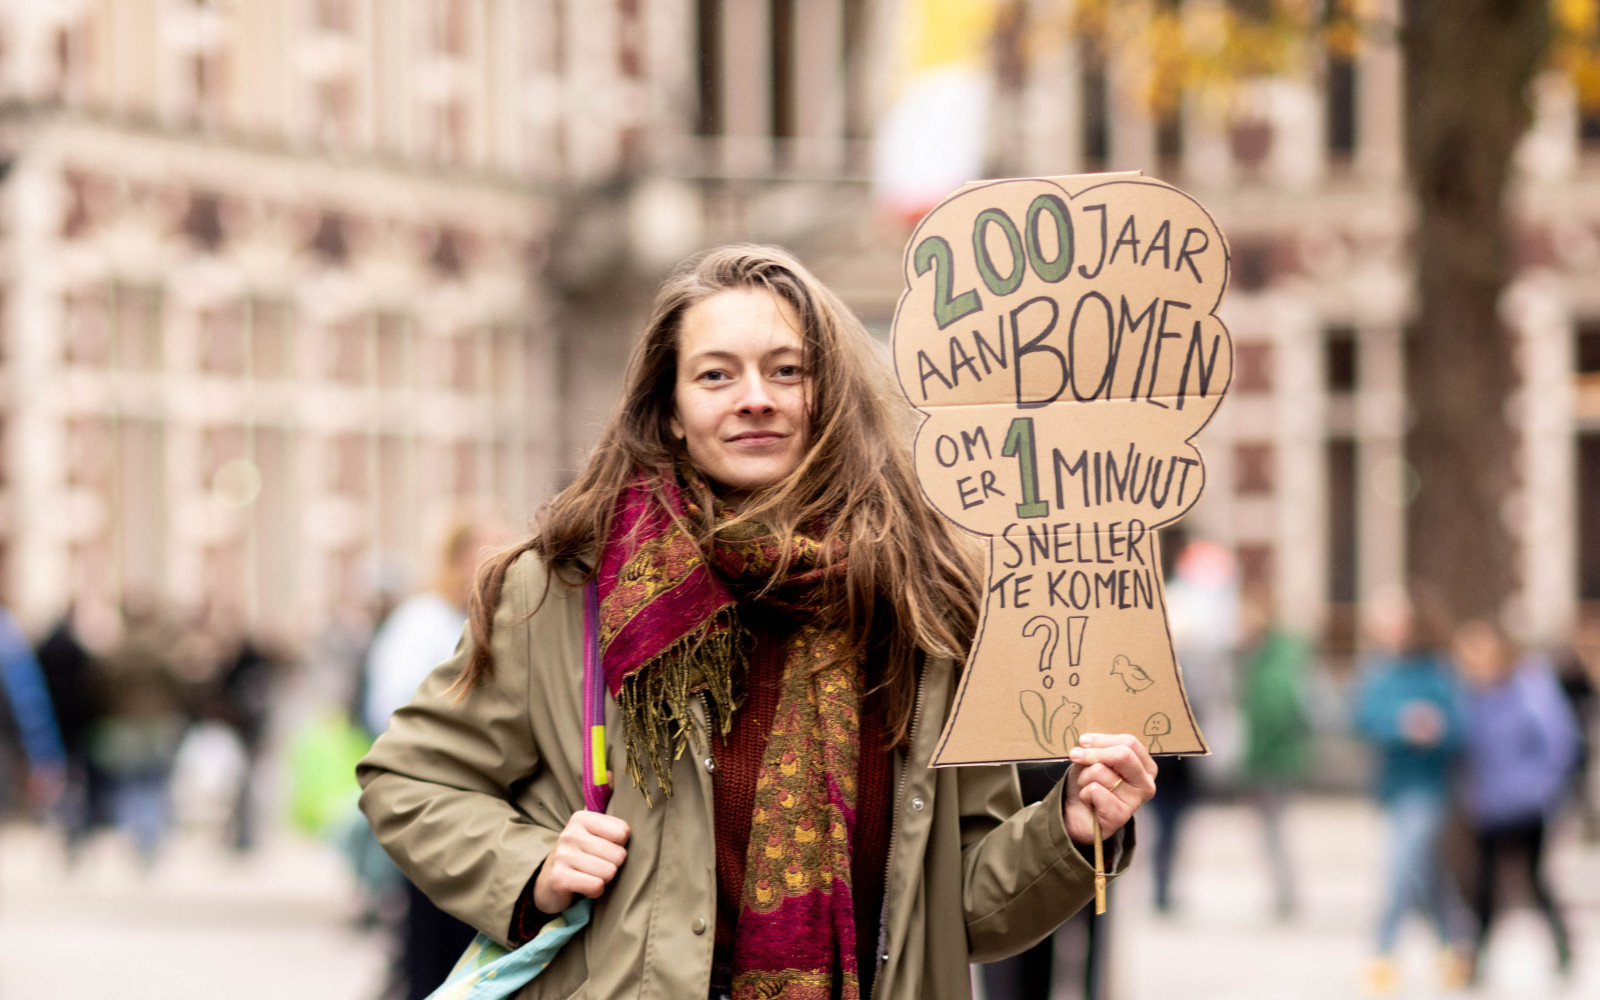 200 JAAR
AAN BOMEN
OM
ER 1 MINUUT
SNELLER
TE KOMEN
?!